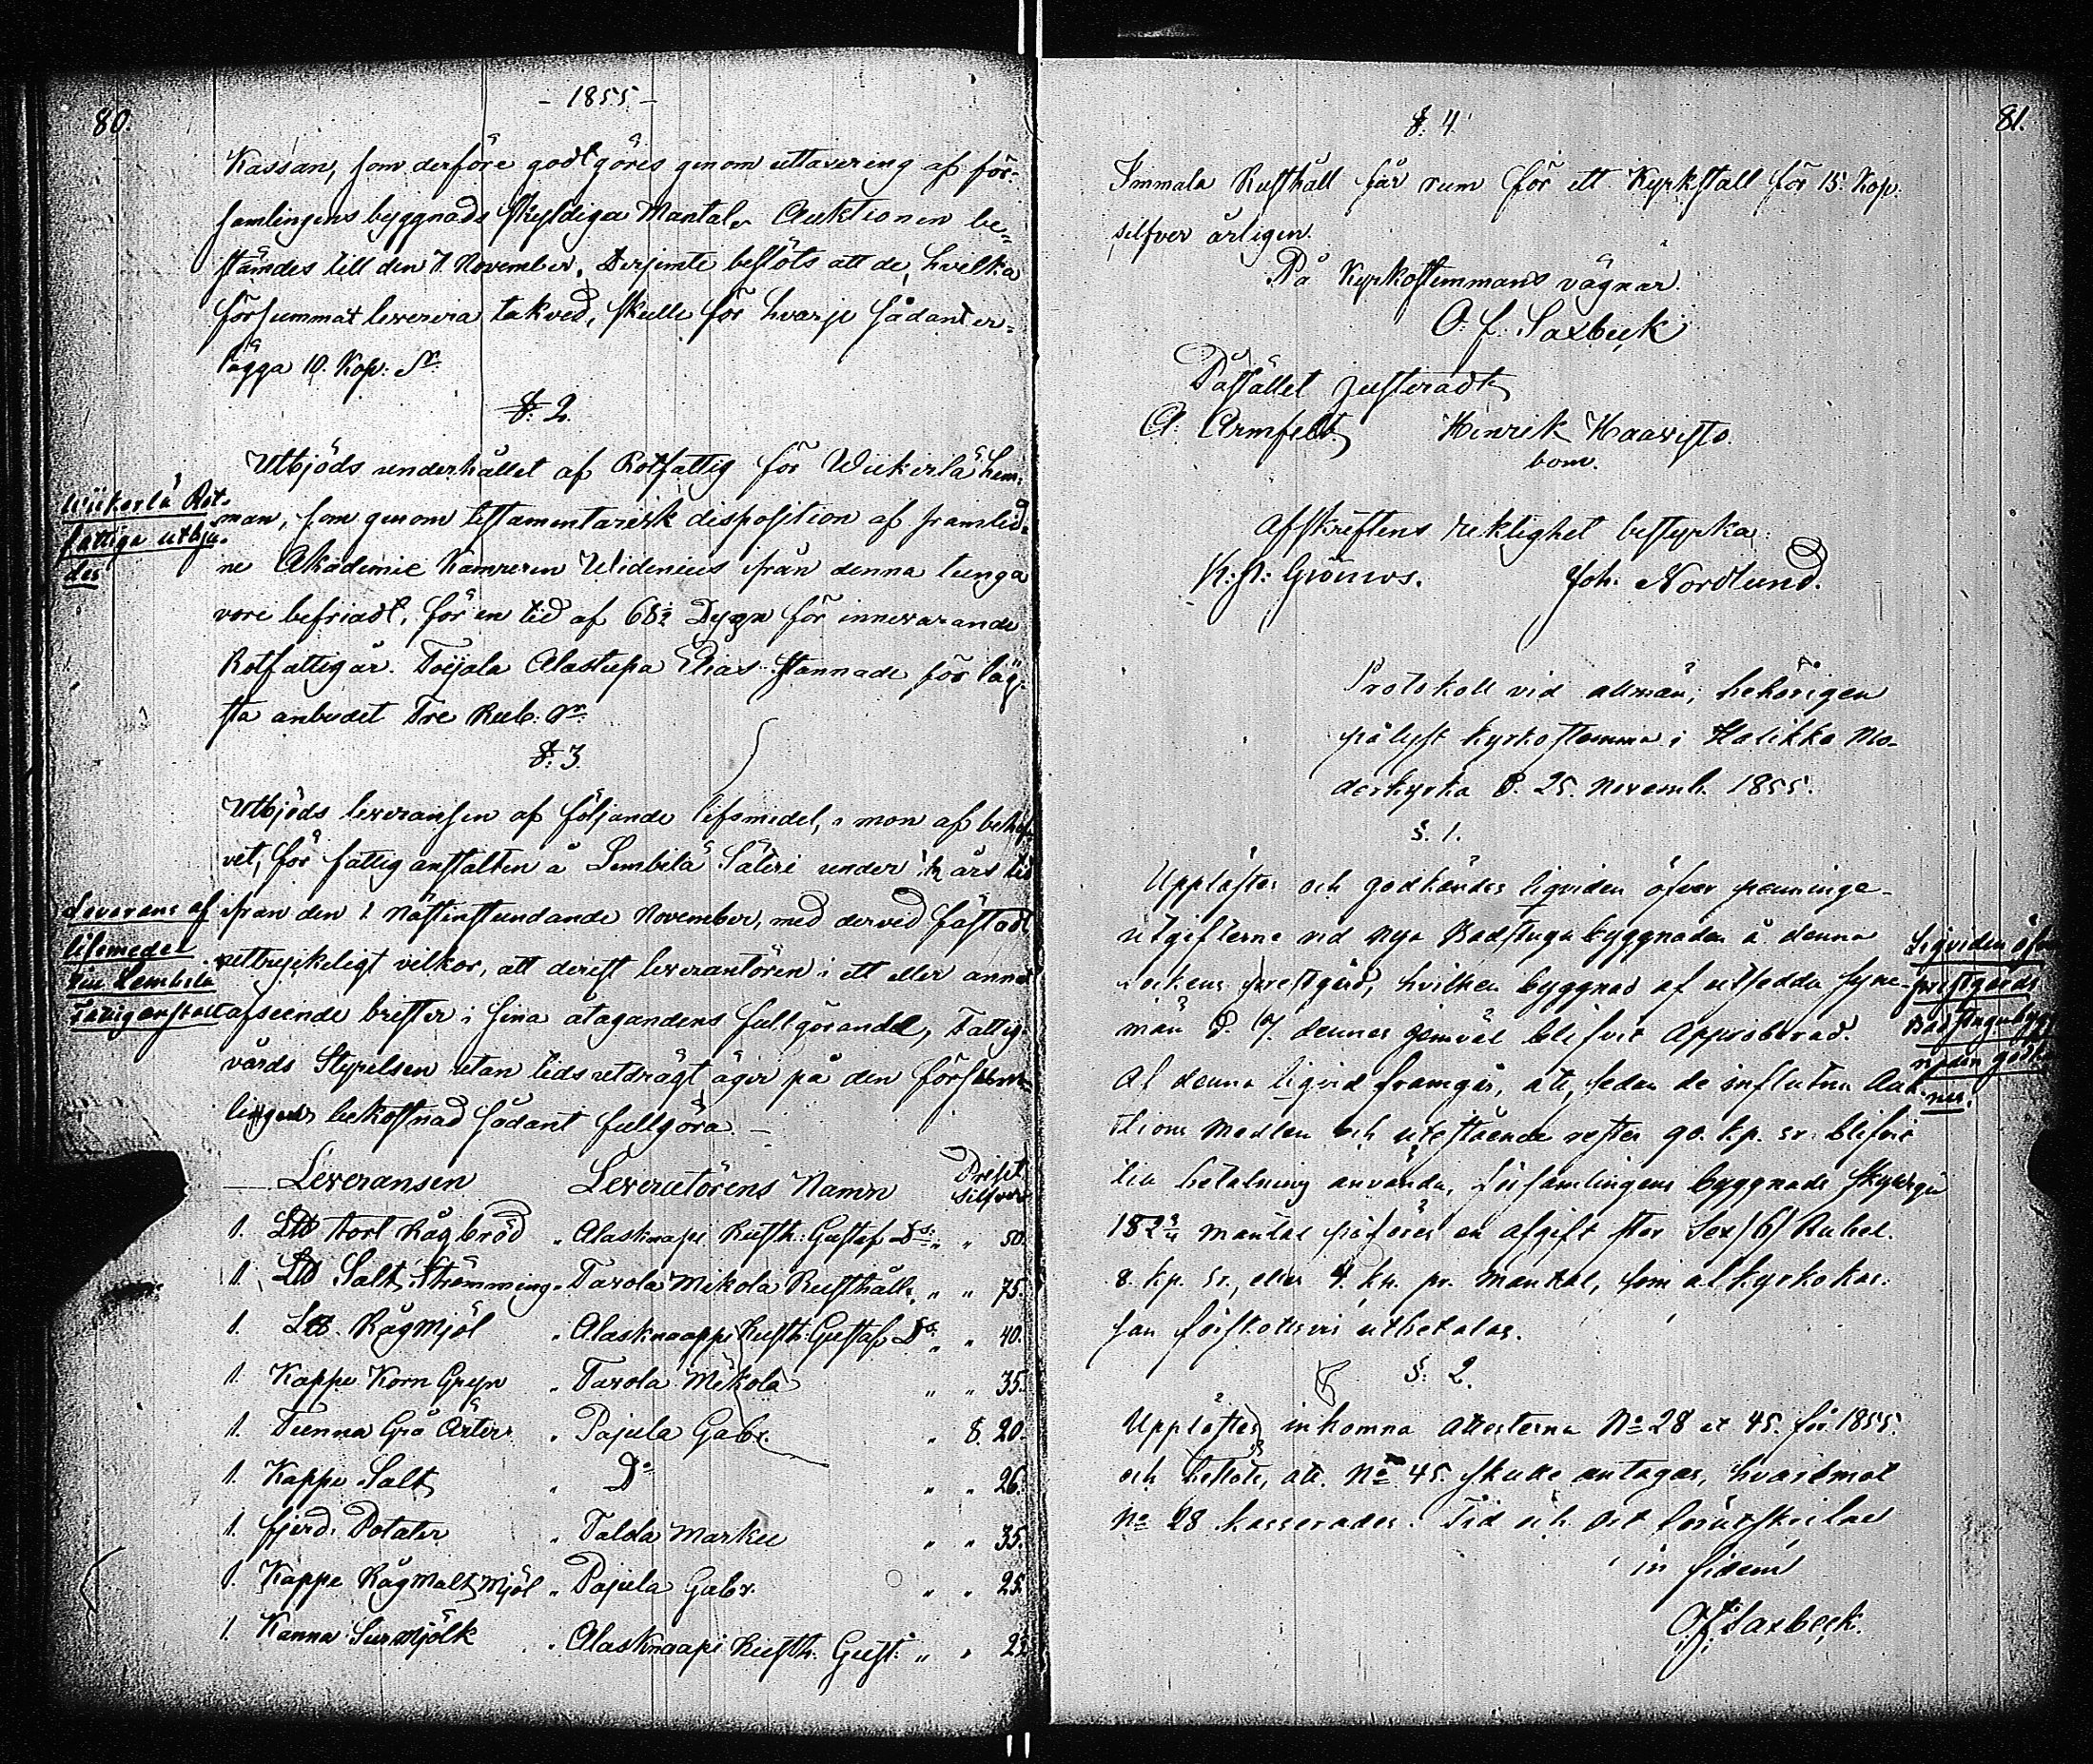 80.
- 1855 -
Kassan, som derföre godtgöres genom uttaxering af för-
samlingens byggnads skyldiga Mantal. Auktionen be-
stämdes till den 7. November. Derjemte beslöts att de, hvilka
försummat leverera takved, skulle för hvarje sådant er-
lägga 10. Kop: Sr.
§. 2.
Utbjöds underhållet af Rotfattig för Wiikerlä hem-
Wiikerlä Rot-
fattiga utbju-
des
man, som genom testamentarisk disposition af framlid-
ne Akademie Kamreren Widenius ifrån denna tunga
vore befriadt, för en tid af 68½ Dygn för innevarande
Rotfattigår. Toijala Alastupa Elias stannade för läg-
sta anbudet Tre Rub. Sr.
§. 3.
Utbjöds leveransen af följande lifsmedel, i mon af behof-
vet, för fattiganstalten å Lembilä Säteri under ½ års tid
Leverans af
lifsmedel
till Lembilä
Fattiganstalt
ifrån den 1 nästinstundande November, med dervid fästadt
uttryckeligt vilkor, att derest leverantören i ett eller annat
afseende brister i sina åtagandens fullgörande, Fattig-
vårds Styrelsen utan tidsutdrägt äger på den försum-
liges bekostnad sådant fullgöra. -
Leveransen Leveratörens Namn Priset Silfver
1. L℔ tort Rågbröd " Alasknaapi Rusth: Gustaf Ds: " " 50.
1. L℔ Salt Strömming " Tavola Mikola Rusthåll " " 75.
1. L℔. Rågmjöl " Alasknaappi Rusth: Gustaf Ds: " " 40.
1. Kappe Korn Gryn " Tavola Mikola " " 35.
1. Tunna Grå Ärter " Pajula Gabr. " 8. 20.
1. Kappe Salt " Do " " 26.
1. fjerd. Potater " Talola Marku " " 35.
1. Kappe Rågmaltsmjöl " Pajula Gabr. " " 25.
1. Kanna Surmjölk " Alasknaapi Rusth. Gust: " " 2½
81.
§. 4.
Immala Rusthåll får rum för ett Kyrkstall för 15. Kop.
silfver årligen.
På Kyrkostemmans vägnar.
O. f. Saxbeck
Påstället justeradt
A. Armfelt. Henrik Haavisto.
bom.
Afskriftens riktighet bestyrka:
Joh. Nordlund.
Protokoll vid allmän, behörigen
pålyst kyrkostemma i Halikko Mo-
derkyrka d. 25. Novemb. 1855.
§. 1.
Upplästes och godkändes liqviden öfver penninge-
utgifterne vid nya Badstugu byggnaden å denna
Liqviden öfver
prestgårds
Badstugubygg-
naden godkän-
nes.
sockens prestgård, hvilken byggnad af utsedda syne-
män d. 9. dennes jemväl blifvit approberad.
Af denna liqvid framgår, att, sedan de influtna Auk-
tions Medlen och utestående rester 90. kp. sr. blifvit
till betalning använda, Församlingens byggnads skyldiga
182¾ mantal påföres en afgift stor Sex /6/ Rubel.
8. kp. Sr., eller 4. kp. pr. Mantal, som af kyrkokas-
san förskottsvis utbetalas.
§. 2.
Upplästes inkomna attesterna No 28 et 45. för 1855.
och beslöts, att No 45. skulle antagas, hvaremot
No 28 kasserades. Tid och Ort förutskrifne
in fidem
O. f. Saxbeck.